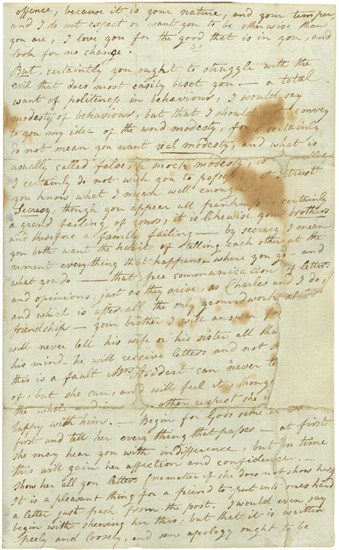 offence, because it is your nature, and your temper
and I do not expect or want you to be otherwise than
you are, I love you for the good that is in you, and
look for no change.
But, certainly you ought to struggle with the
evil that does most easily beset you — a total
want of politeness in behaviour, I would say
modesty of behaviour, but that I should not convey
to you my idea of the word modesty, for I certainly
do not mean you want real modesty, and what is
usually called false, or mock modesty, is
I certainly do not wish you to possess
you know what I mean well enough
Secrecy, though you appear all frankness, is certainly
a grand failing of yours, it is likewise your brothers
and therefore a family failing — by secrecy I mean
you both want the habit of telling each other at the
moment every thing that happens — where you go — and
what you do — that free communication of letters
and opinions, just as they arise, as Charles and I do
and which is after all the only groundwork of
friendship — your brother I will answer for
will never tell his wife or his sister all that
his mind — he will receive letters and not
this is a fault Mrs Stoddart can never
of, but she can, and will feel it, though
the whole, and in other respect she is
happy with him. — Begin for Gods sake at
first and tell her every thing that passes — at first
she may hear you with indifference, but in time
this will gain her affection and confidence —
show her all your letters (no matter if she does not show hers)
it is a pleasant thing for a friend to put into ones hand
a letter just fresh from the post. I would even say
begin with shewing her this, but that it is written
freely and loosely, and some apology ought to be